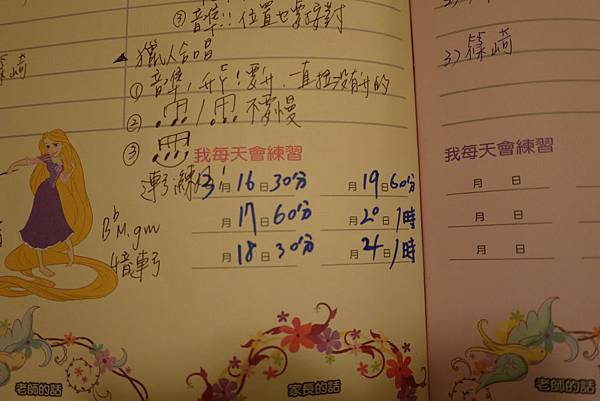 ③音準!! 位置也要按對
▲獵人合唱
①音準,升F!要升、直拉沒有升的
② / 不要慢
③
我每天會練習
3月16日30分
月19日60分
月17日60分
月20日1時
月18日30分
月21日1時
B♭M.gm
老師的話
家長的話
3)篠崎
我每天會練習
月 日
月 日
月 日
老師的話